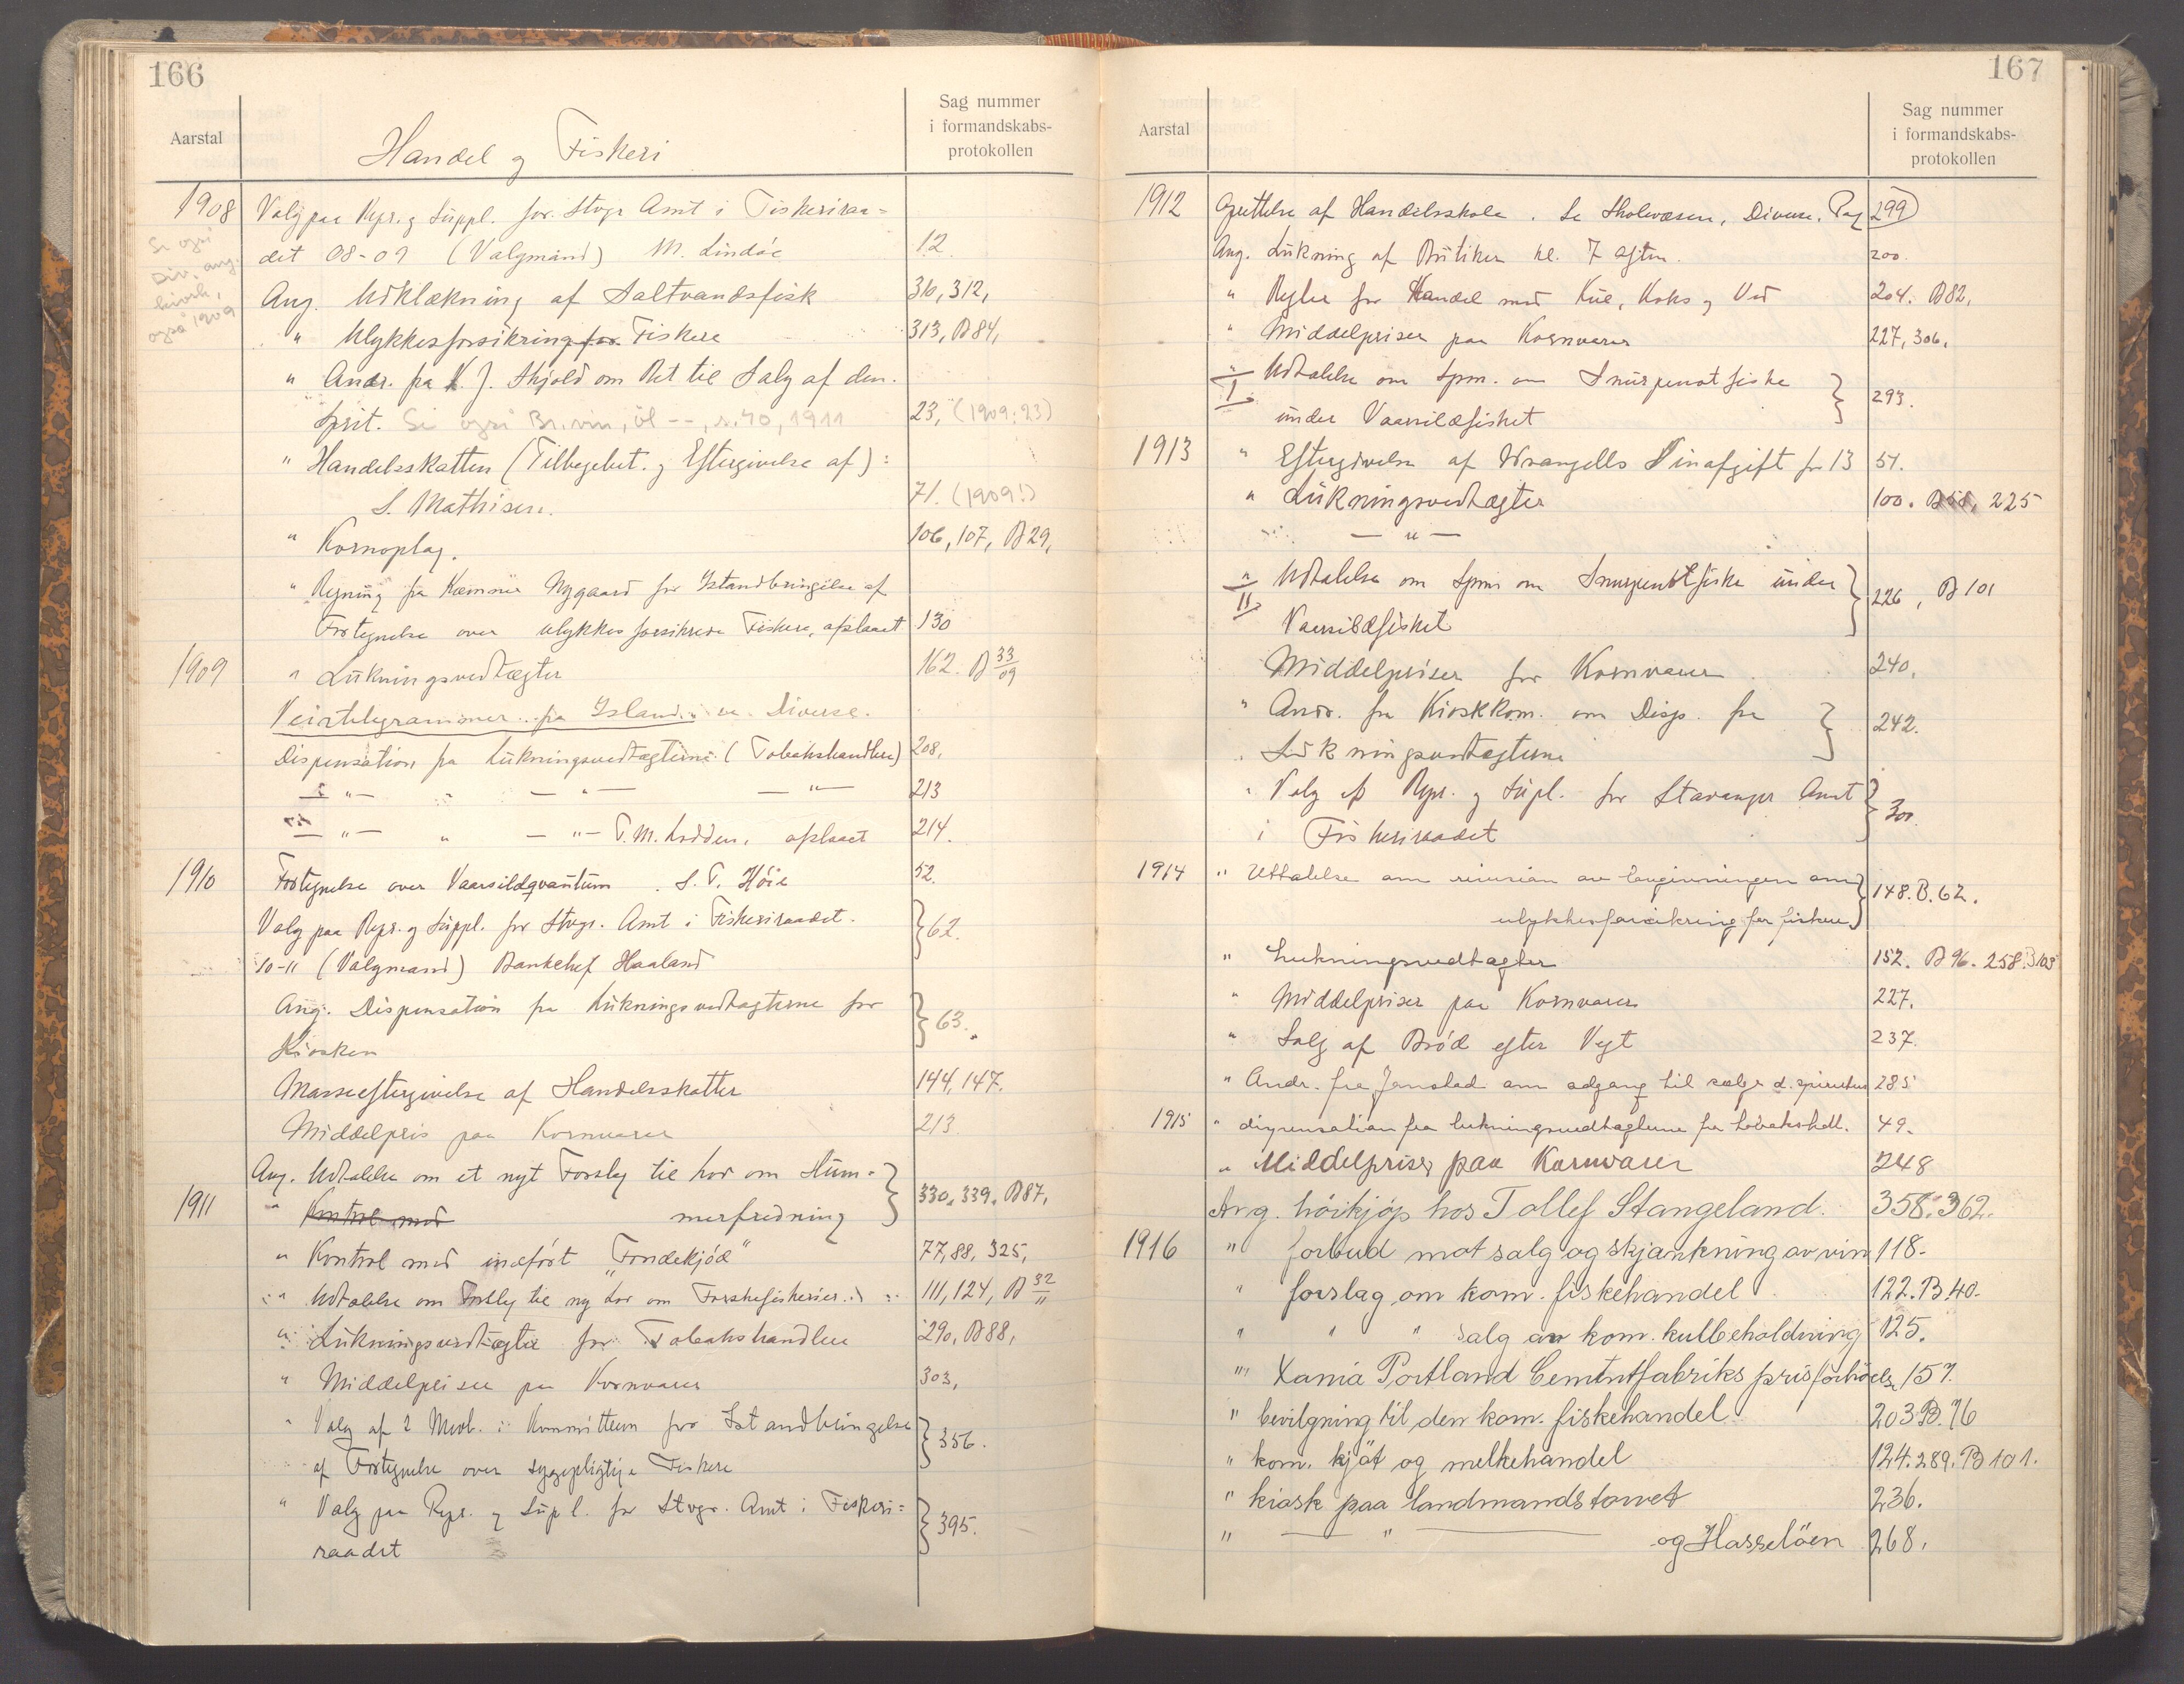 166
Aarstal
Handel og Fiskeri
Sag nummer
i formandskabs-
protokollen
1908 Valg paa Repr. og Suppl. for Stvgr Amt i Fiskeriraa=
det 08-09 (Valgmänd) M. Lindöe 12
Se også
Div. ang.
også 1909
Ang. Udklækning af Saltvandsfisk 310, 312,
" Ulykkesforsikring for Fiskere 313, B 84,
" Andr. fra K. J. Skjold om Ret til Salg af den.
Sprit. Se også Br.vin, öl --, s. 40, 1911 23, (1909: 23)
" Handelsskatten (Tilbagebet. og Eftergivelse af):
S. Mathisen. 71. (1909!)
" Kornoplag. 106, 107, B 29,
" Regning fra Kæmner Nygaard for Istandbringelse af
Fortegnelse over ulykkesforsikrede Fiskere, afslaaet 130
1909 " Lukningsvedtægter 162. B 33/09
Veirtelegrammer fra Island se Diverse.
Dispensation fra Lukningsvedtægterne (Tobakshandlere) 208,
— " — " — " — — " — 213
— " — " — " — T. M. Lodden, afslaaet 214.
1910 Fortegnelse over Vaarsildqvantum. S. T. Höie 52.
Valg paa Repr. og Suppl. for Stvgr. Amt i Fiskeriraadet.
10-11 (Valgmand) Bankchef Haaland } 62.
Ang. Dispensation fra Lukningsvedtægterne for
Kiosken } 63.
Masseeftergivelse af Handelsskatter 144, 147.
Middelpris paa Kornvarer 213.
Ang. Udtalelse om et nyt Forslag til Lov om Hum=
1911 " Kontrol med merfredning } 330, 339. B 87,
" Kontrol med indført "Fondekjöd" 77, 88, 325,
" Udtalelse om Forslag til ny Lov om Torskefiskerier 111, 124, B 32/11
" Lukningsvedtægter for Tobakshandlere 290, B 88,
" Middelpriser paa Kornvarer 303,
" Valg af 2 Medl. i Kommitteen for Istandbringelse
af Fortegnelse over sygepligtige Fiskere } 356.
" Valg paa Repr. og Supl. for Stvgr. Amt i Fiskeri=
raadet } 395.
167
Aarstal
Sag nummer
i formandskabs-
protokollen
1912 Oprettelse af Handelsskole. Se Skolevæsen, Diverse, Pag 299
Ang. Lukning af Butiker kl. 7 eftm. 200.
" Regler for Handel med Kul, Koks og Ved 204. B 82,
" Middelpriser paa Kornvarer 227, 306,
" Udtalelse om Spm. om Snurpenotfiske
I. under Vaarsildfisket } 293.
1913 " Eftergivelse af Wrangells Vinafgift for 13 51.
" Lukningsvedtægter 100. B 58, 225
— " —
" Udtalelse om Spm om Snurpenotfiske under
II Vaarsildfisket } 226, B 101
Middelpriser for Kornvarer 240,
" Andr. fra Kioskkom. om Disp. fra
Lukningsvedtægterne } 242.
" Valg af Repr. og Supl. for Stavanger Amt
i Fiskeriraadet } 300
1914 " Uttalelse om revision av lovgivningen om
ulykkesforsikring for fiskere } 148. B. 62.
" Lukningsvedtægter 152. B 96. 258. B 103
" Middelpriser paa Kornvarer 227.
" Salg af Bröd efter Vegt 237.
" Andr. fra Jenstad om adgang til sælge d. spiritus 285
1915 " dispensation fra lukningsvedtægterne for tobakshdl. 49.
" Middelpriser paa Kornvarer 248
Ang. höikjöp hos Tollef Stangeland. 358. 362.
1916 " forbud mot salg og skjænkning av vin 118.
" forslag om kom. fiskehandel 122. B. 40.
" " " salg av kom. kulbeholdning 125.
" Xania Portland Cementfabriks prisforhöielse 157.
" bevilgning til den kom. fiskehandel 203 B. 76
" kom. kjöt og melkehandel 124. 289. B 101.
" kiosk paa landmandstorvet 236.
" — " — og Hasselöen 268.